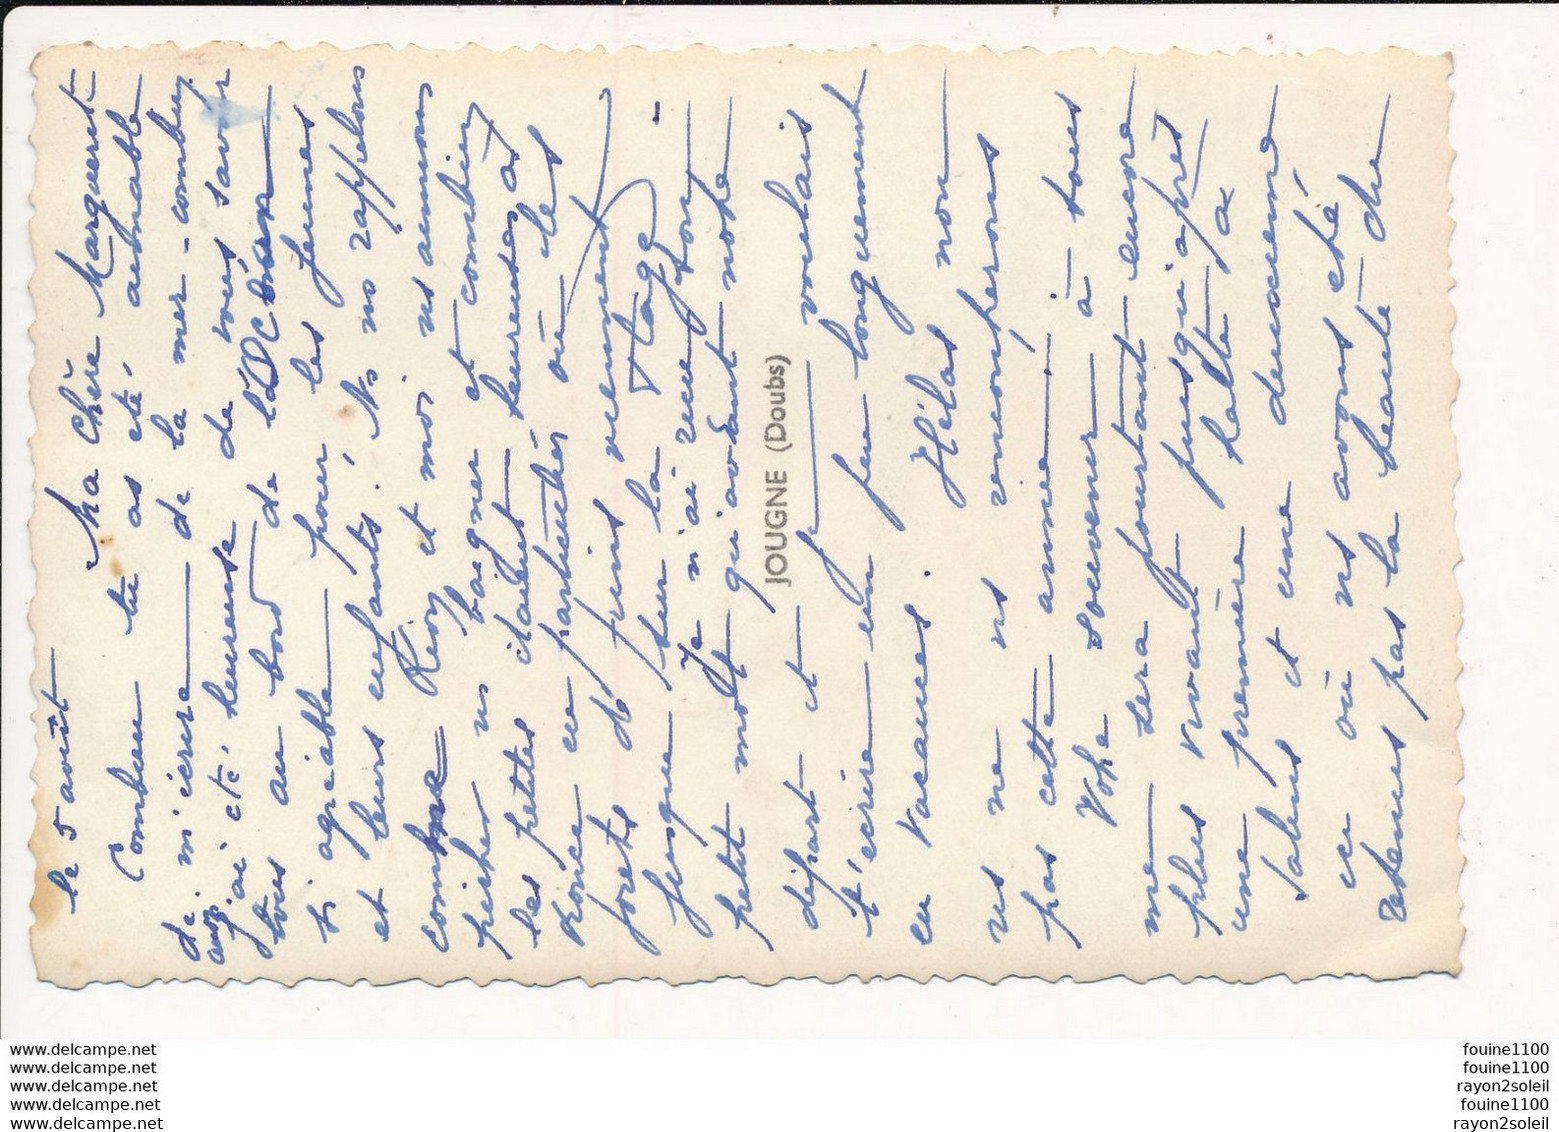 le 5 août
Ma Chère Marguerite
Combien tu as été aimable
de m'écrire de la mer - combien
aussi j'ai été heureuse de vous savoir
tous au bord de
si agréable pour les jeunes
et leurs enfants! Ns ns rappelons
combien et moi ns aimions
pêcher ns baigner et combien
les petites étaient heureuses à
en particulier où les
forêts de pins viennent
jusque sur la plage -
Je n'ai reçu ton
petit mot qu'avant notre
JOUGNE (Doubs)
départ et je voulais
t'écrire un peu longuement
en vacances. Hélas non
ns ne ns rencontrerons
pas cette année! à tous
Votre souvenir
me sera pourtant encore
plus vivant puisqu'après
une première halte à
Salins et une deuxième
ici où ns avons été
retenus par la beauté du
www.delcampe.net
www.delcampe.net
www.delcampe.net
www.delcampe.net
www.delcampe.net
fouine1100
fouine1100
rayon2soleil
fouine1100
rayon2soleil